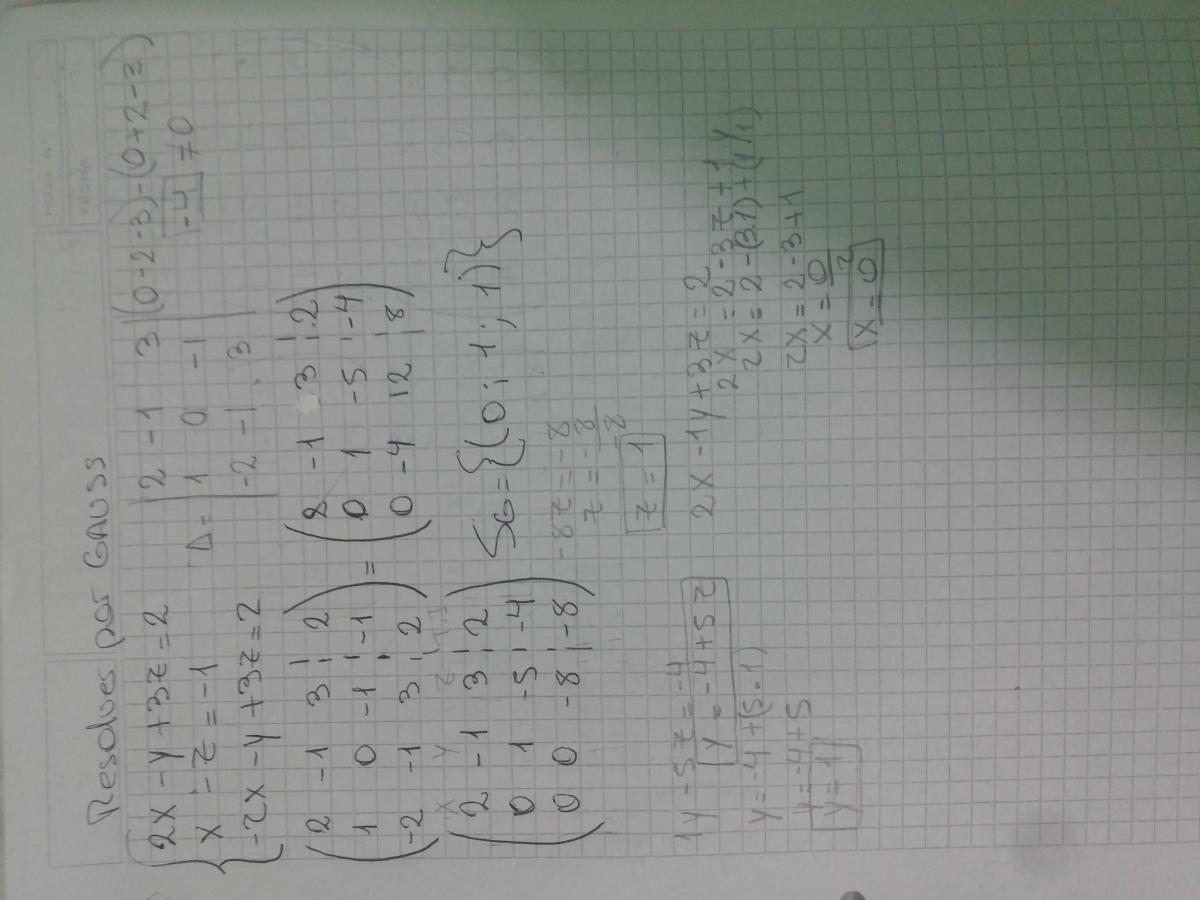 HOJA N°
FECHA
Resolver por GAUSS
2x - y + 3z = 2
x - z = -1
-2x - y + 3z = 2
Δ = | 2 -1 3 | (0-2-3)-(0+2-3)
1 0 -1 -4 ≠ 0
-2 -1 3
( 2 -1 3 | 2
1 0 -1 | -1
-2 -1 3 | 2 )
=
( 2 -1 3 | 2
0 1 -5 | -4
0 -4 12 | 8 )
x y z TI
( 2 -1 3 | 2
0 1 -5 | -4
0 0 -8 | -8 )
SG = {(0; 1; 1)}
-8z = -8
z = -8/-8
z = 1
1y - 5z = -4
y = -4 + 5z
y = -4 + (5.1)
y = -4 + 5
y = 1
2x - 1y + 3z = 2
2x = 2 - 3z + 1y
2x = 2 - (3.1) + (1.1)
2x = 2 - 3 + 1
x = 0/2
x = 0